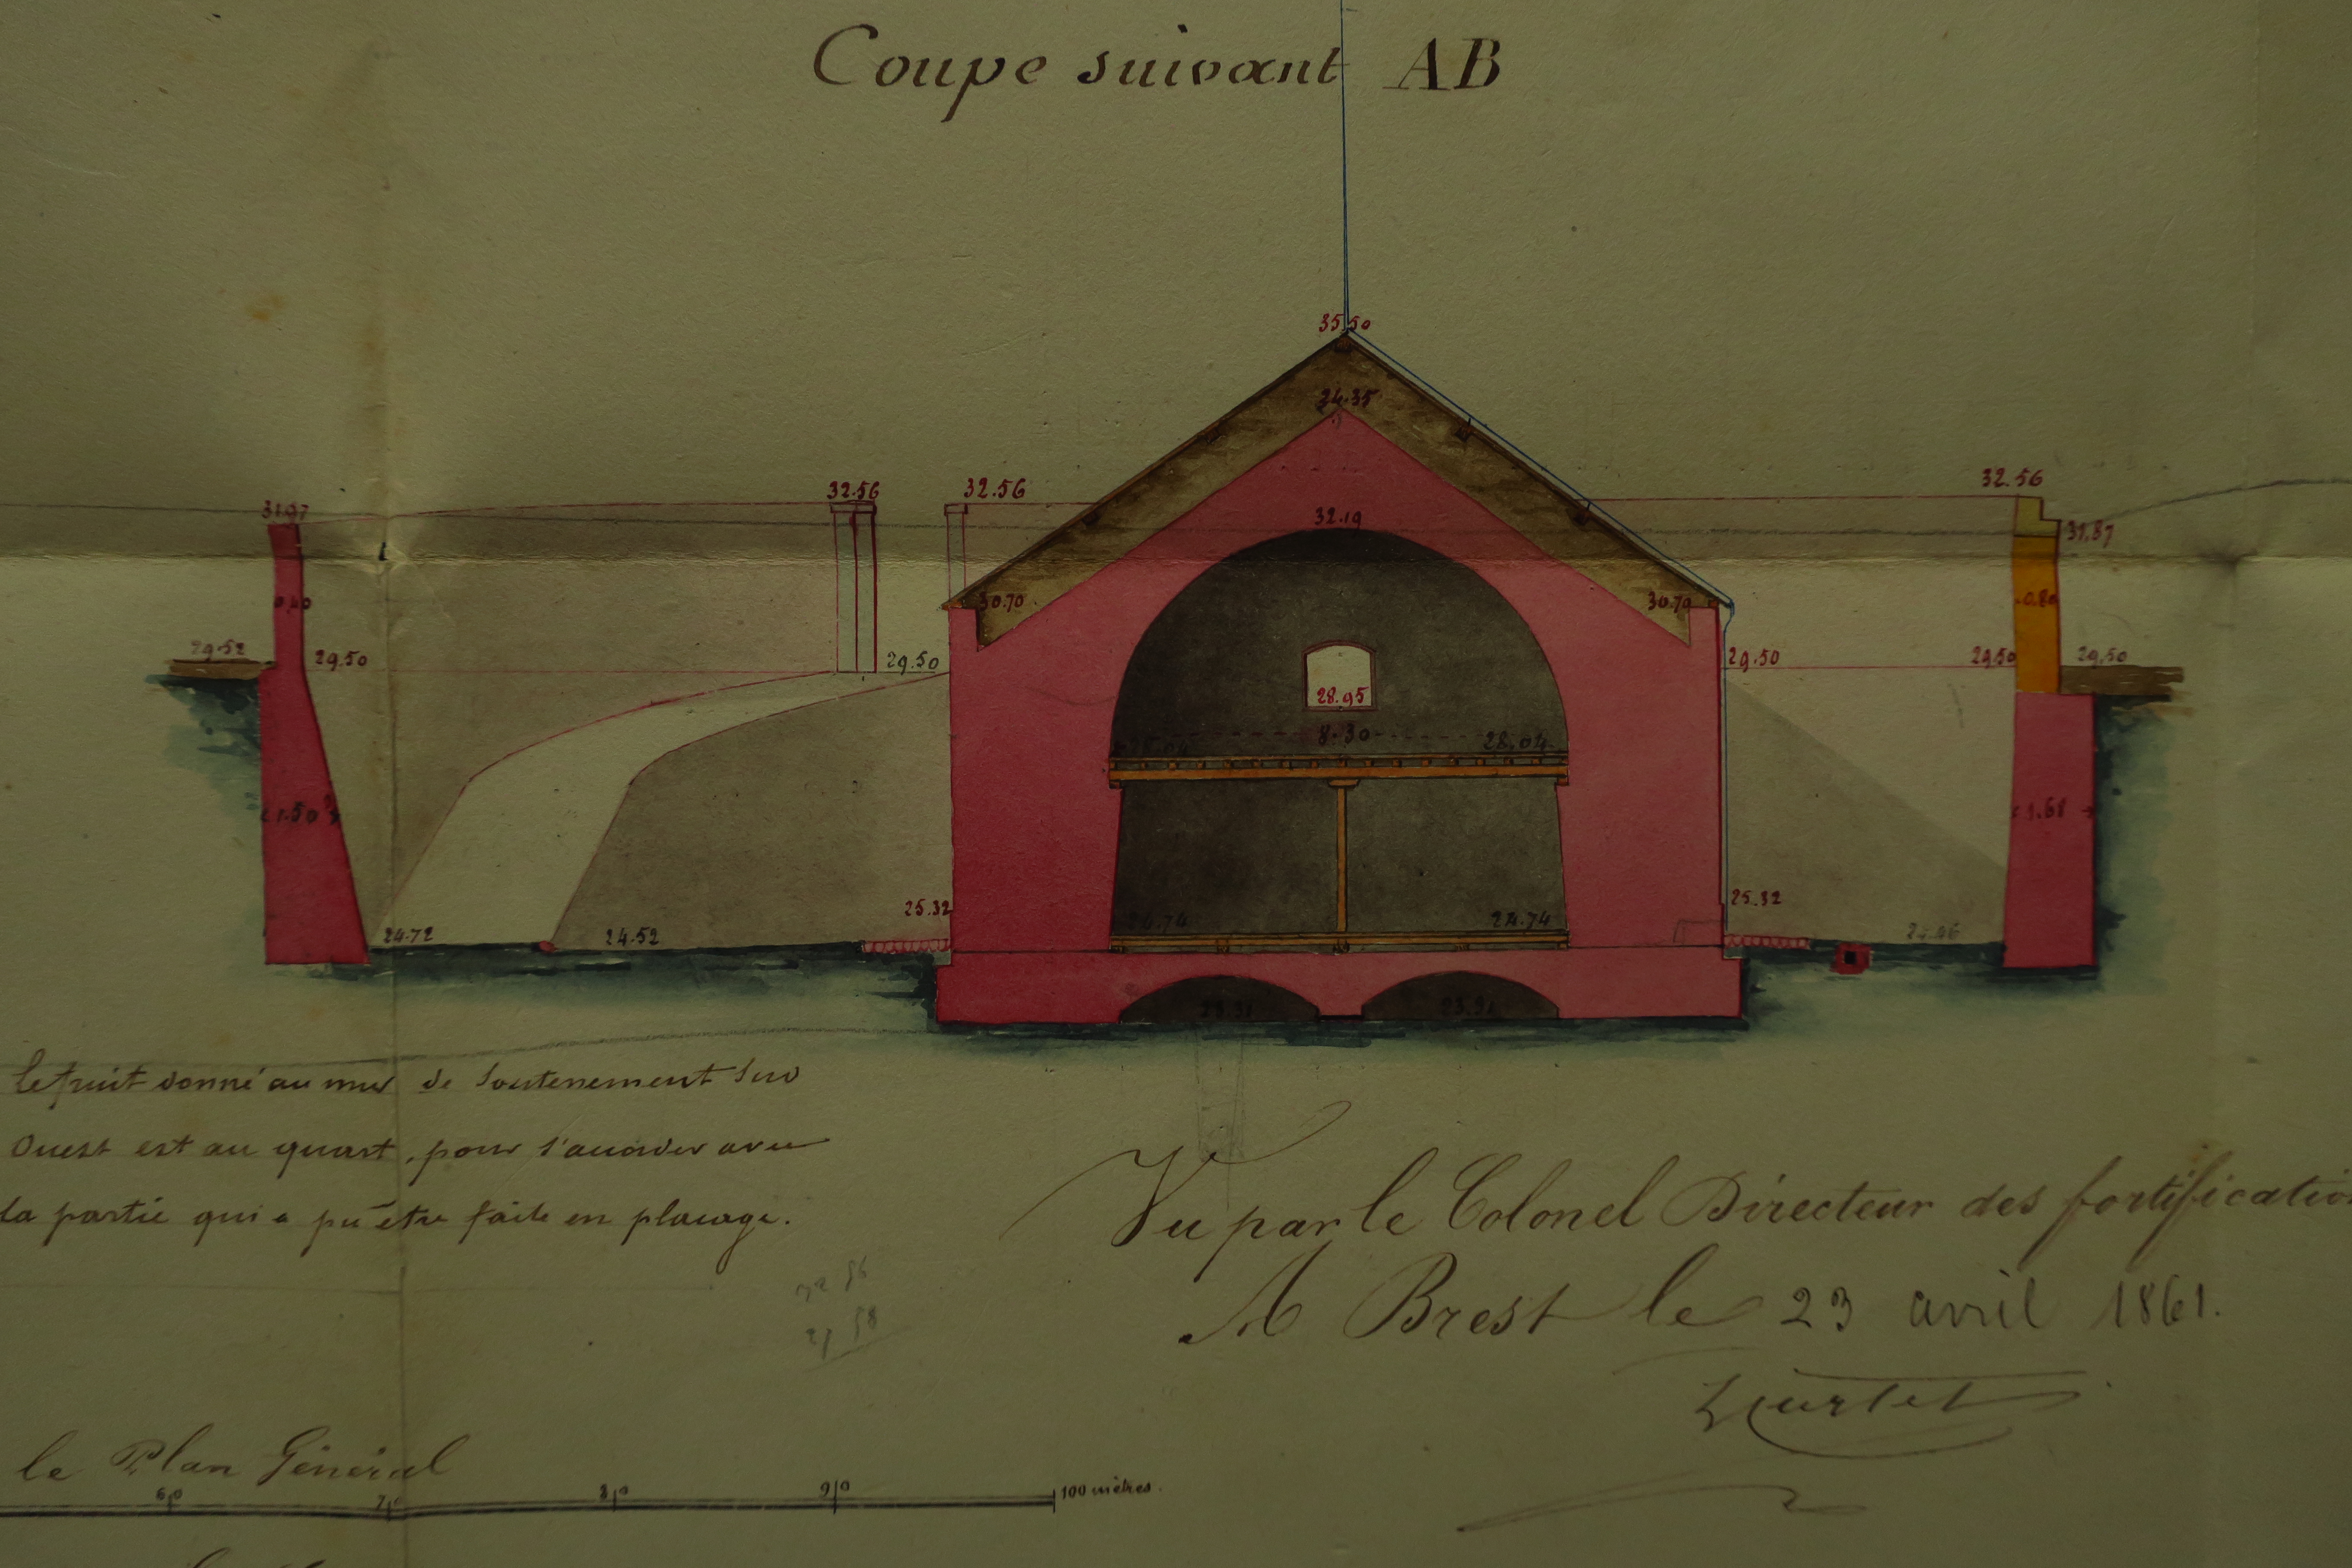 Coupe suivant AB
35.50
34.35
32.56 32.56 32.56
31.97 32.19 31.87
0.40 30.70 30.70 0.80
29.52 29.50 29.50 29.50 29.50 29.50
28.95
8.30
28.04 28.04
1.50 1.68
25.32 25.32
24.72 24.52 24.74 24.74
23.91 23.91
le fruit donné au mur de soutenement Sud
Ouest est au quart, pour s'accorder avec
la partie qui a pu être faite en placage.
Vu par le Colonel Directeur des fortification
A Brest le 23 avril 1861.
le Plan Général
60 70 80 90 100 mètres.